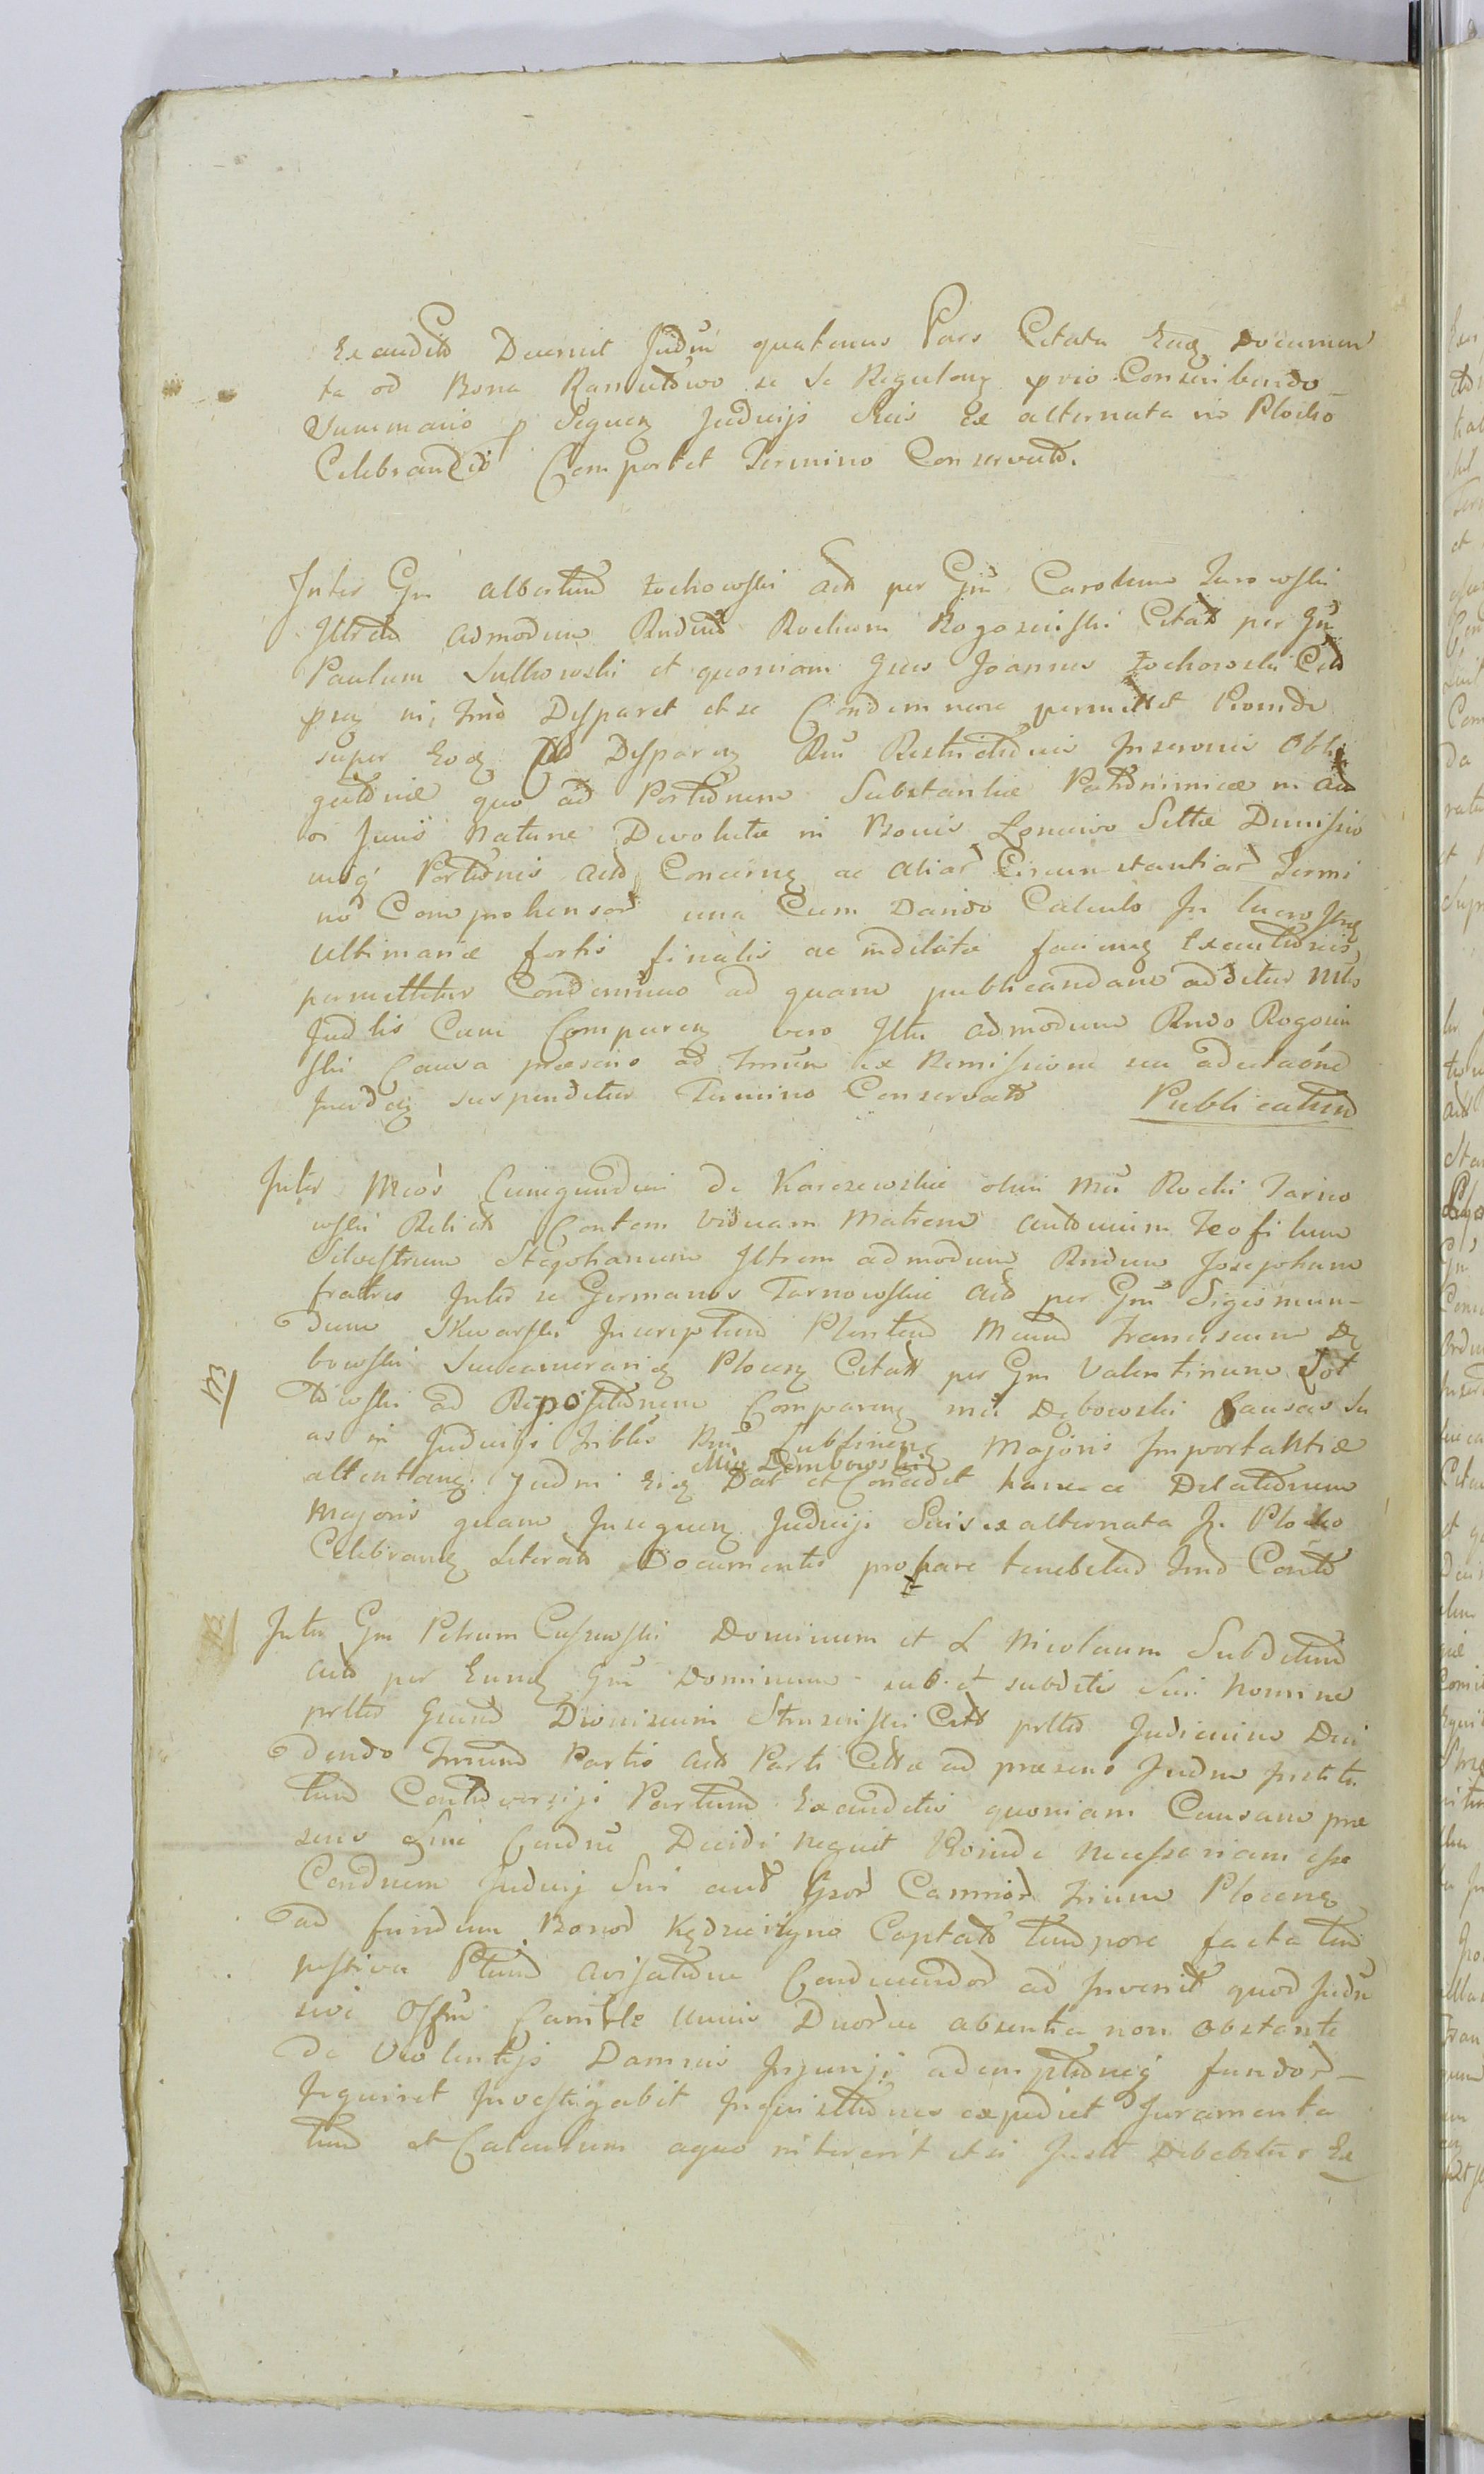 Exaudits Decernit Judm quatenus Pars Citata Eaq Documen
ta ad Bona Ramutowo se se Regulonq prio Conscribendo
Summario p Sequenq Judicijs Suis ex alternata in Plocko
Celebrandis Comportet Termino Conservato.
Inter Gm Albertum Zochowski Act per Gm Carolum Jurowski
Illrem admodum Rndum Rochum Rogozinski Citat per Gm
Paulum Sulkowski et quoniam Gsus Joannes Zochowski Citt
in Tmo Disparet et se Condemnare permittet Proinde
super Eodq Disparenq Rm Restitutionis Inscronis Obli
gatoriæ quo ad Portionem Substantiæ Patrimonicæ in
Juris Naturæ Devolutæ in Bonis Settæ Dimissio
nisq Portionis Act Concernq ac aliar Circumstantiar Termi
no Comprehensar una Cum Dando Calculo In lucro
Ultimariæ fortis finalis ac indilatæ faciendq Executionis
permittitur Condemnno ad quam publicandam additur Mtro
Judlis Cum Comparenq vero Illri admodum Rndo Rogozin
ski Causa præsens ad Tmum ex Remissione seu adcitaone
suspenditur Termino Conservato Publicatum
Inter Mcos Cunegundem de Karczewskie olim Mci Rochi Tarno
wski Relict Contem Viduam Matrem Antonium Teofilum
Silvestrum Stephanum Illrem admodum Rndum Josephum
fratres Inter se Germanos Tarnowskie Act per Gm Sigismun-
dum Skwarski Inscriptum Plentem Mcum Franciscum Dę
bowski Succamerarium Plocenq Citatt per Gm Valentinum
towski ad Repositionem Comparenq Mci Dębowski Causas Su
as in Judicijs Triblis Rni Lublinenq Majoris Importantiæ
Mco Dembowski
attentanq Judm Eiq Dat et Concedit hancce Delationem
Majoris quam Insequenq Judicijs Suis ex alternata In Plocko
Celebranq Literat Documentis probare tenebitur Tmo Conto
Inter Gm Petrum Cussewski Dominum et L Nicolaum Subditum
Act per Eunq Gm Dominum sub et subditi Sui Nomine
pnltes Gnum Dionisium Struzinski Citt pnltes Judicium Dci
dendo Tmum Partis Act Parti Cittæ ad præsens Judm Institu
tum Controversijs Partium Exauditis quoniam Causam præ
sens Sine Condne Decidi nequit Proinde necessariam esse
Condnem Judicij Sui aut Gsor Camrior Trium Plocenq
ad fundum Bonor Kędzierzyno Captato tempore facta tem
pestiva Ptium avisatione Condicendor ad Invenit quod Judm
sive Offm Camrle unius Duorve absentia non obstante
de Violentijs Damnis Injurijs ademptionisq fundor
Inquiret Investigabit Inquisitiones expediet Juramenta
tum et Calculum aquo niterent et si Juste Debebitur Ex